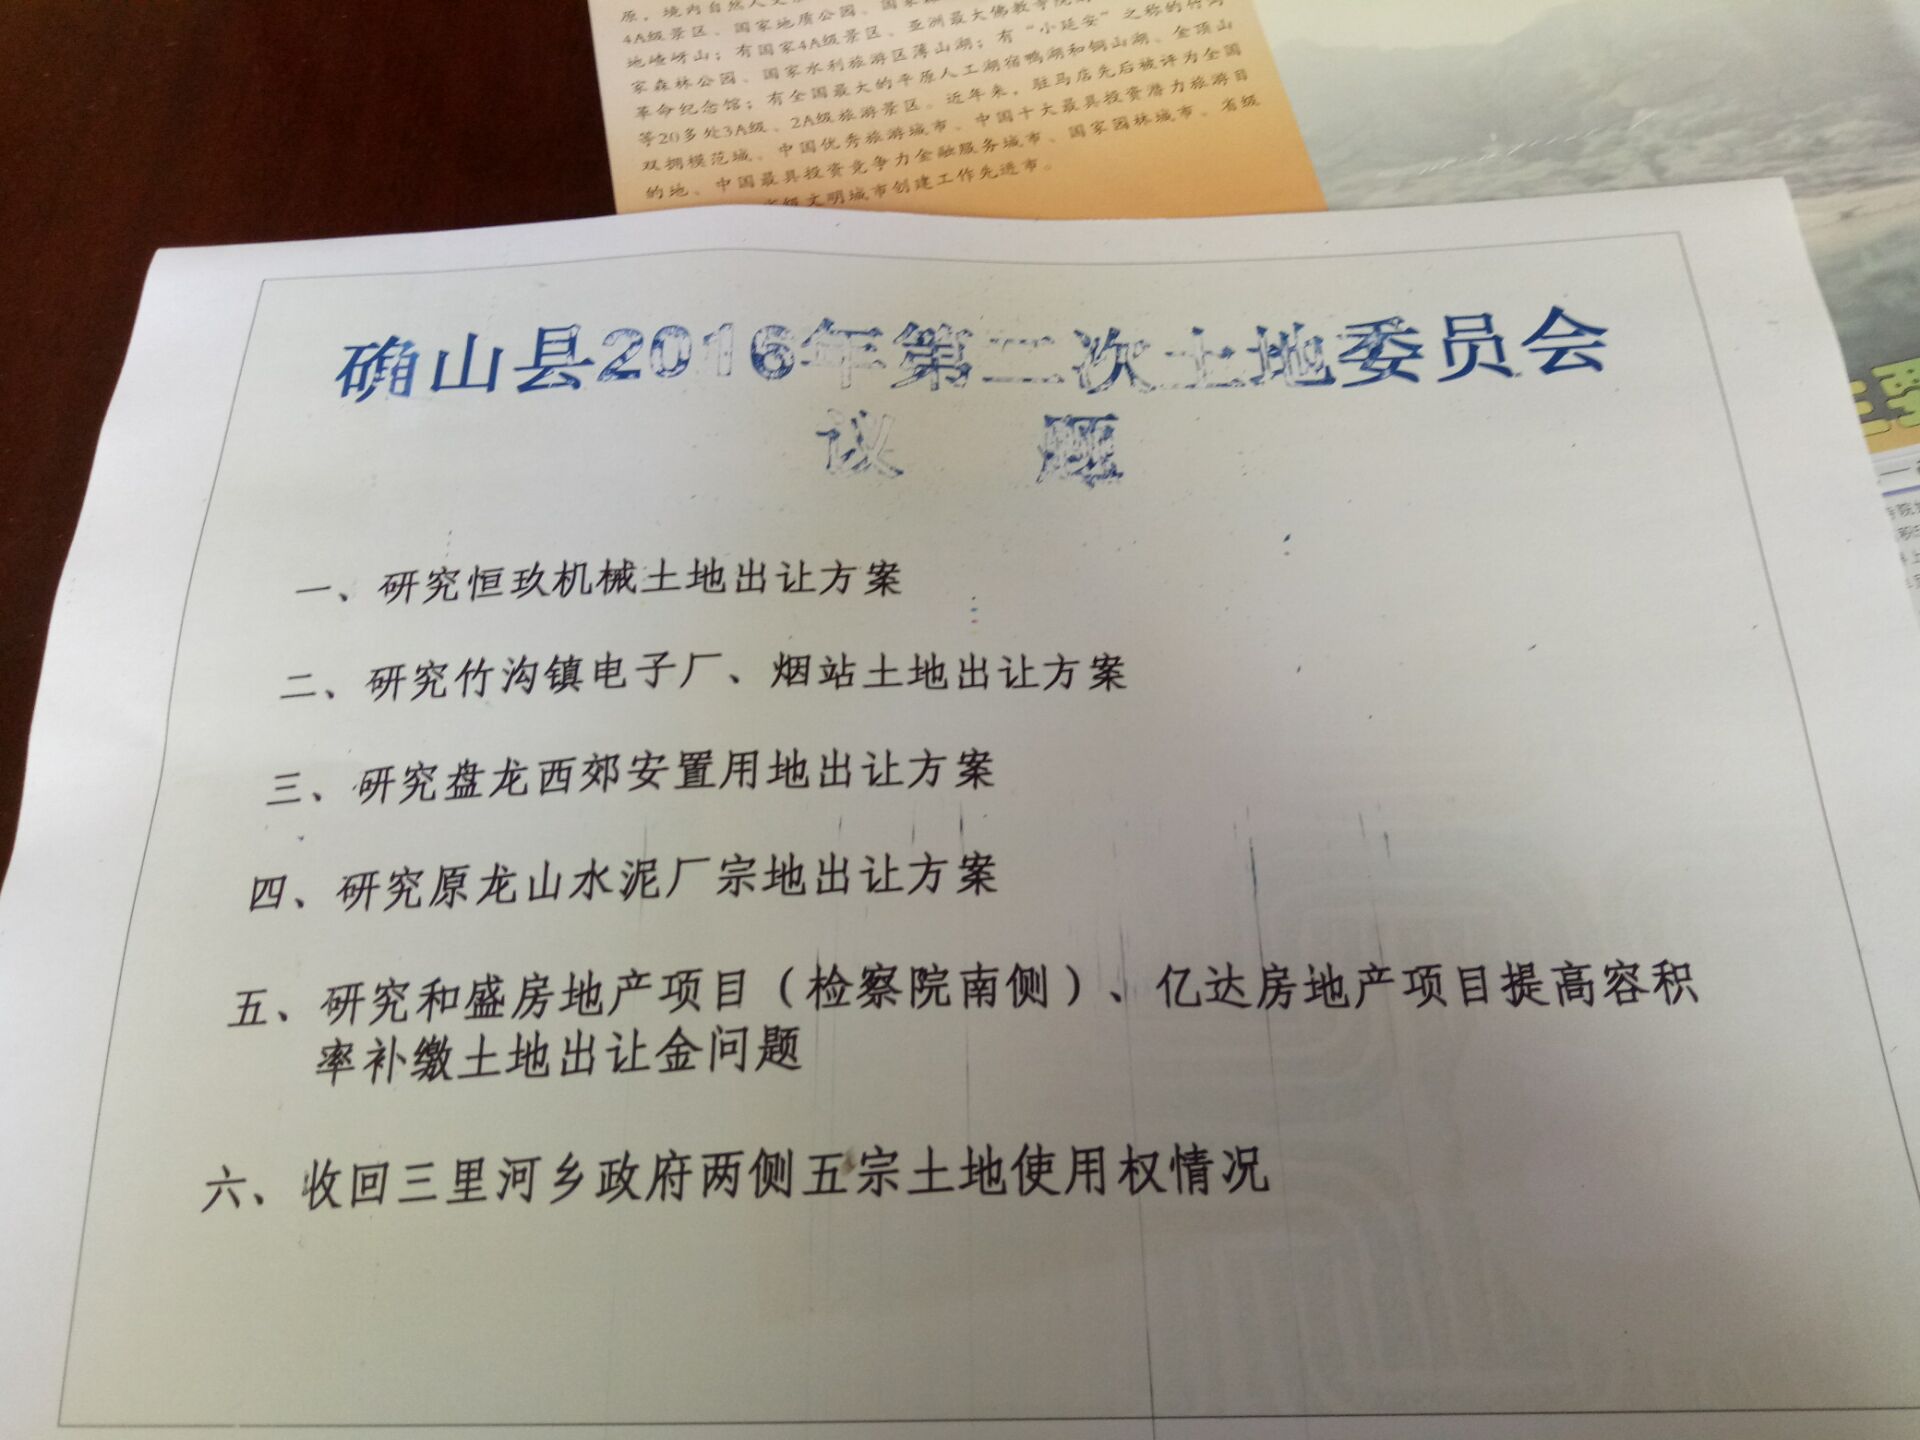 原，境内自然人文
4A级景区、国家地质公园、国家森
地嵖岈山；有国家4A级景区、亚洲最大佛教寺院
家森林公园、国家水利旅游区薄山湖；有“小延安”之称的竹沟
革命纪念馆；有全国最大的平原人工湖宿鸭湖和铜山湖、金顶山
等20多处3A级、2A级旅游景区。近年来，驻马店先后被评为全国
双拥模范城、中国优秀旅游城市、中国十大最具投资潜力旅游目
的地、中国最具投资竞争力金融服务城市、国家园林城市、省级
省级文明城市创建工作先进市。
确山县2016年第二次土地委员会
议 题
一、研究恒玖机械土地出让方案
二、研究竹沟镇电子厂、烟站土地出让方案
三、研究盘龙西郊安置用地出让方案
四、研究原龙山水泥厂宗地出让方案
五、研究和盛房地产项目（检察院南侧）、亿达房地产项目提高容积
率补缴土地出让金问题
六、收回三里河乡政府两侧五宗土地使用权情况